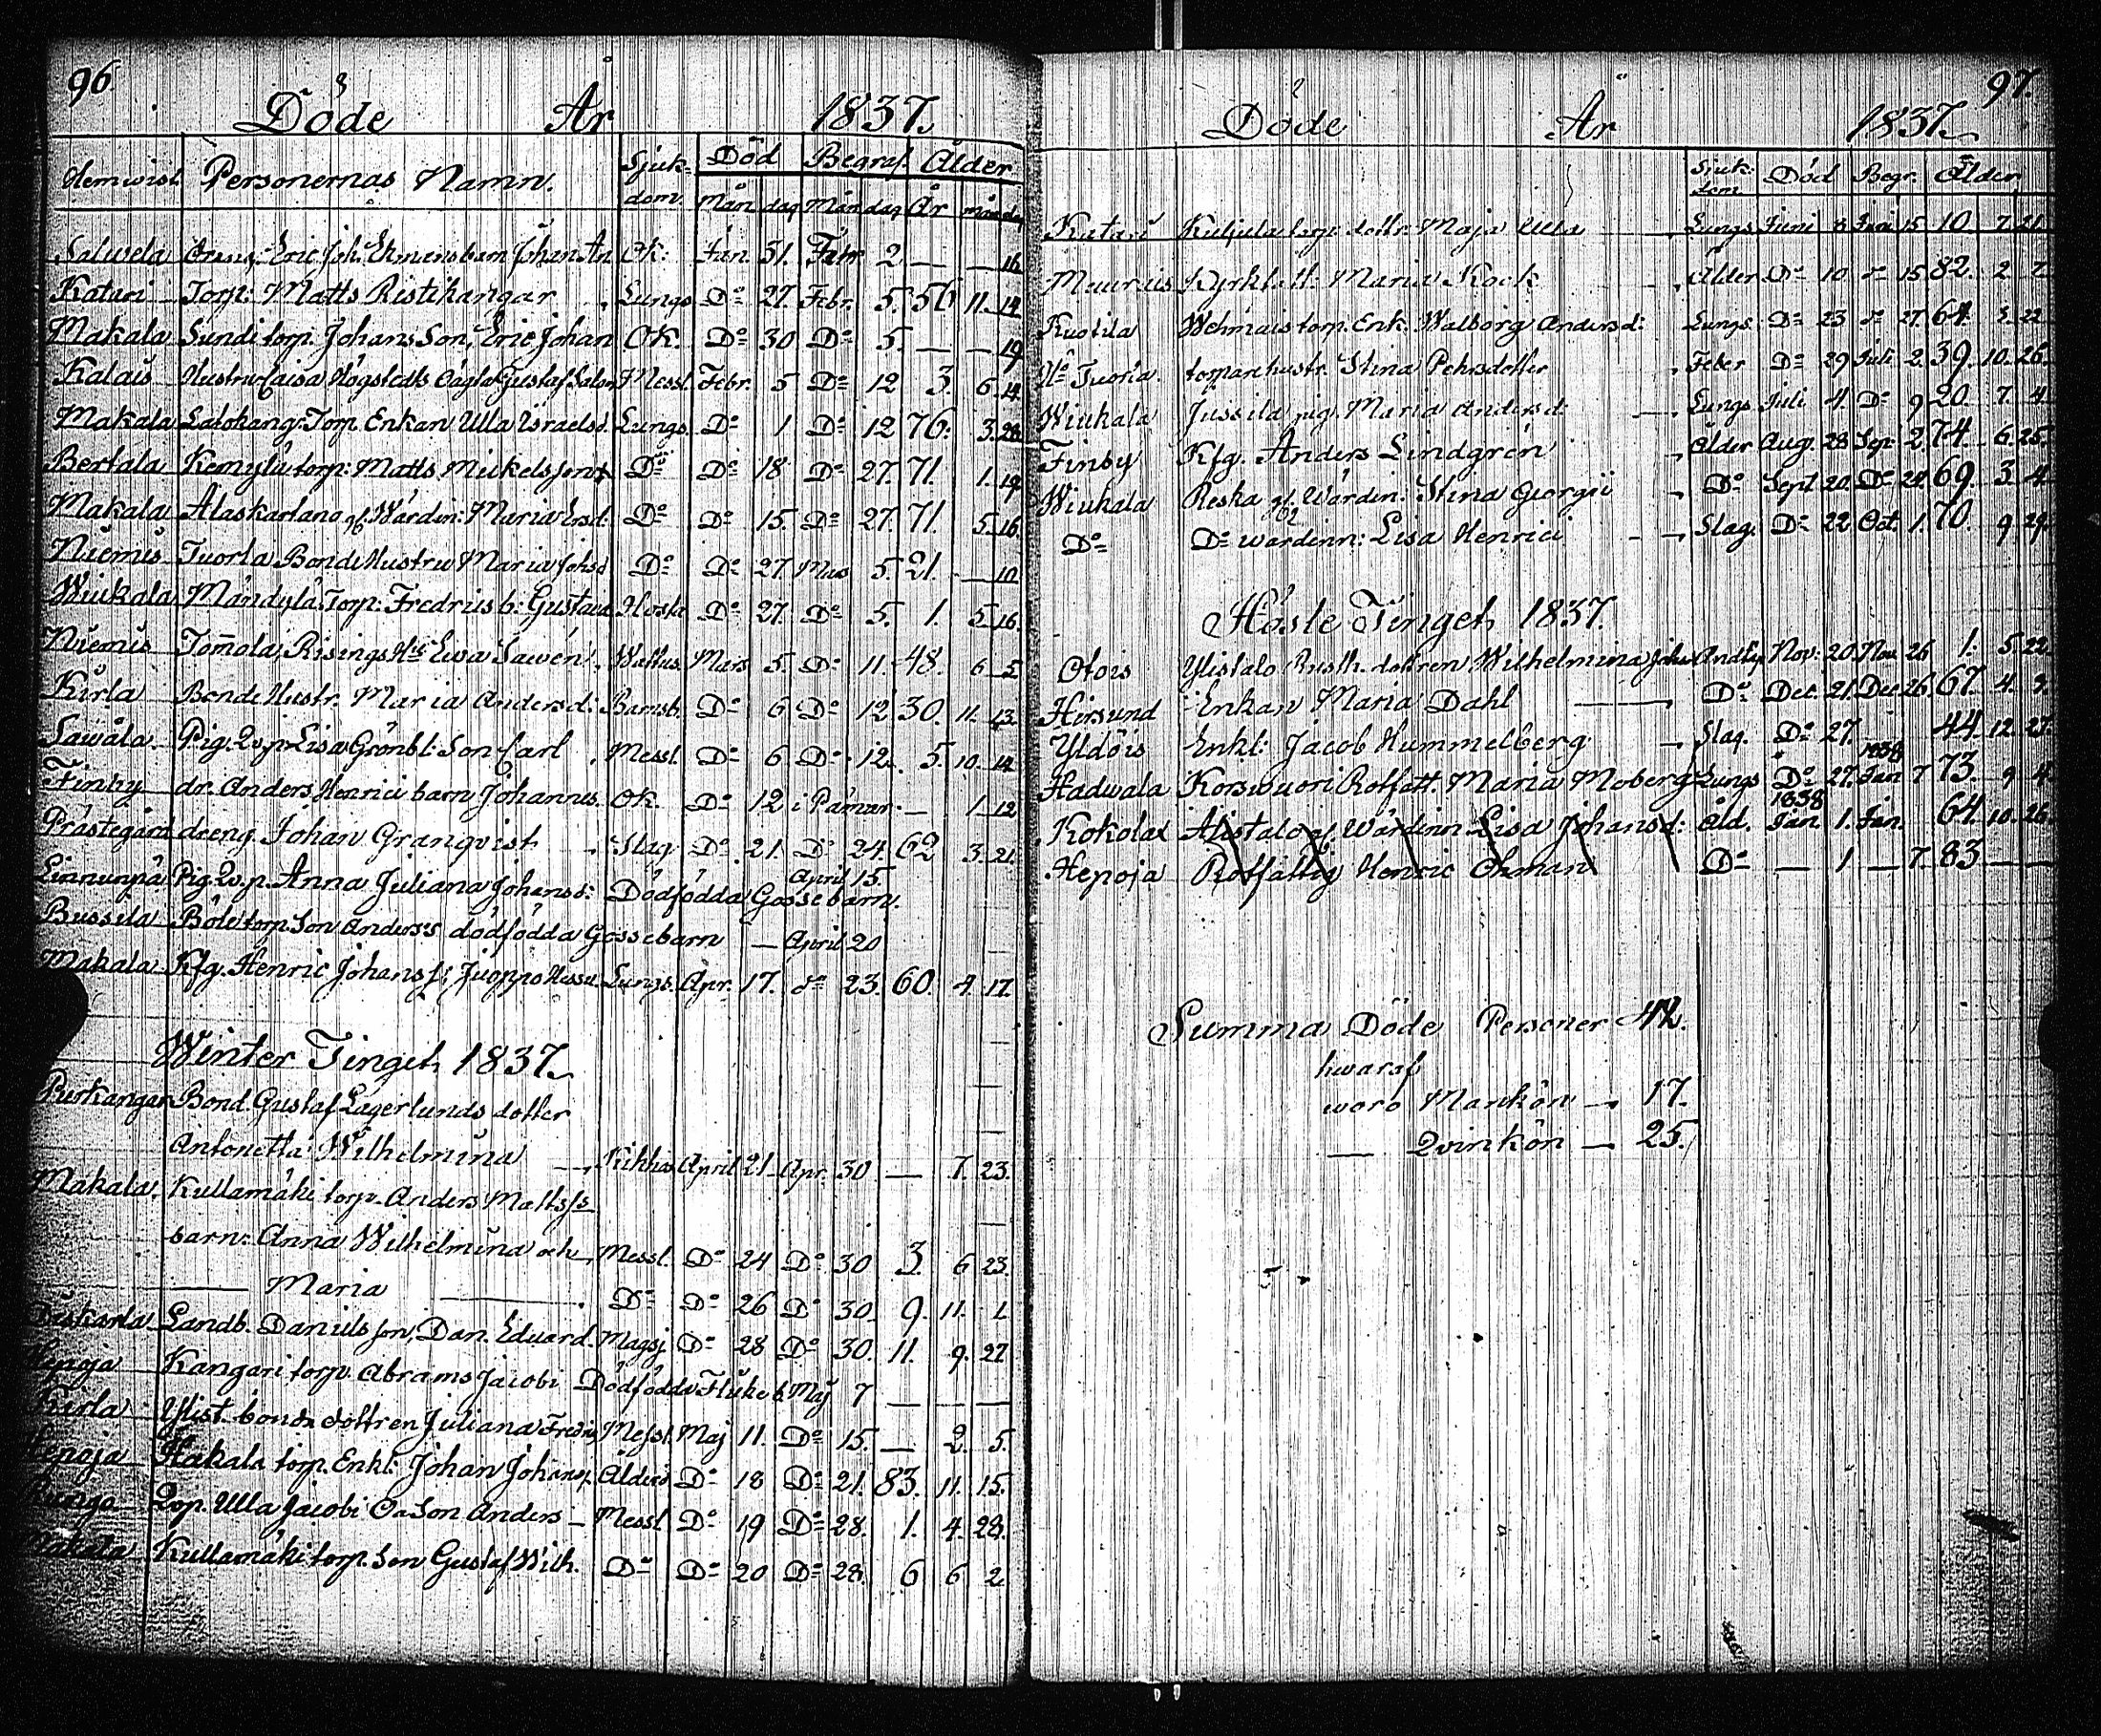 96.
Döde År 1837.
Hemvist Personernas Namn. Sjuk- Död Begraf. Ålder
dom. Mån dag Mån dag År mån dag
Salwela Eric Joh. barn Johan An Ok: Jan. 31. Febr 2 — — 16
Katari Torp: Matts Ristikangar Lungs Do 27. Febr. 5. 56 11. 14
Makala Sundi torp. Johans Son, Eric Johan OK. Do 30 Do 5. — — 19
Kalais Hustru Caisa Högstedts Gustaf Messl. Febr. 5 Do 12 3. 6 14
Makala Torp. Enkan Ulla Israelsd. Lungs. Do 1 Do 12 76. 3. 28
Bertala Kemylä torp: Matts Mickelsson Do Do 18 Do 27. 71. 1. 19
Makala Alaskartano Wärdin: Maria Ersd: Do Do 15. Do 27. 71. 5. 16
Niemis Tuorla Bonde Hustru Maria Johsd Do Do 27. Mars 5. 21. — 10
Wiukala Mändylä Torp: Fredrics b: Gustava Hosta Do 27. Do 5. 1. 5. 16.
Niemis Tomola, Risings Hu Ewa Sawén. Wattus. Mars 5. Do 11. 48. 6 5
Kirla Bonde Hustr. Maria Andersd: Barnsb. Do 6 Do 12 30. 11. 13.
Sawala Pig. Qvp. Lisa Grönbl: Son Carl Messl. Do 6 Do 12. 5. 10. 14
Finby dr. Anders Henrici barn Johannes. OK. Do 12 i Pämar. — 1. 12
Prästegård dreng. Johan Granqvist Slag Do 21. Do 24. 62 3. 21.
Linnunpä Pig. Qv.p. Anna Juliana Johansd: Dödfödda Gossebarn. April 15.
Bussila Böle torp. Son Anderses dödfödda Gossebarn — April 20
Makala Kfg. Henric Johanss: Juoppo Lungs. Apr. 17. do 23. 60. 4. 17.
Winter Tinget, 1837.
Purkangar Bond. Gustaf Lagerlunds dotter
Antonetta Wilhelmina Kikhos April 21. Apr. 30 — 7. 23.
Makala. Kullamäki torp. Anders Mattss
barn: Anna Wilhelmina och Messl. Do 24 Do 30 3. 6 23.
— Maria Do Do 26 Do 30. 9. 11. 1.
Landb. Daniels son, Dan. Eduard. Magsj. Do 28 Do 30. 11. 9. 27.
Hepoja Kangari torp. Abrams Jacobi Dödfödda Flicke b. Maj 7 — — —
Kirla Ylist. bonde dottren Juliana Fredric Messl. Maj 11. Do 15. — 2. 5.
Hepoja Hakala torp. Enkl: Johan Johanss. Ålderd Do 18 Do 21. 83. 11. 15.
Qvp. Ulla Jacobi Son Anders — Messl Do 19 Do 28. 1. 4. 28.
Makala Kullamäki torp. Son Gustaf Wilh. Do Do 20 Do 28. 6 6 2
97.
Döde År 1837.
Sjuk- Död Begr. Ålder
dom
Katari Kuljula torp. dottr. Maja Ulla Lungs Juni 8 Juni 15 10. 7. 21.
Maurius Kyrkfatt: Maria Kock Ålder Do 10 do 15 82. 2 2
Kuotila Wehmais torp. Enk. Walborg Andersd: Lungs. Do 23 do 27. 64. 3. 22
No Tuorla. torparehustr. Stina Pehrsdotter Feber Do 29 Juli 2. 39. 10. 26.
Wiukala Jussila pig. Maria Andersd: Lungs Juli 4. Do 9 20. 7. 4.
Finby Kfg. Anders Lindgren Ålder Aug. 28 Sep. 2. 74. 6. 25.
Wiukala Reska gl Wärdin: Stina Georgii Do Sept 20. Do 24. 69. 3. 4
Do Do wärdinn: Lisa Henrici Slag. Do 22. Oct. 1. 70. 9 29.
Höste Tinget, 1837.
Otois Ylistalo Rusth. dottren Wilhelmina Nov: 20. Nov. 26 1. 5. 22
Hirsund Enkan Maria Dahl Do Dec. 21. Dec. 26. 67. 4. 9.
Yldöis Enkl: Jacob Hummelberg Slag. Do 27. — 44. 12. 27.
Hadwala Korswuori Rotfatt. Maria Moberg Lungs Do 27. 1838 Jan 7 73. 9 4.
Kokola Alistalo gl. Wärdinn Lisa Johansd: Åld. 1838 Jan. 1. Jan. 64. 10. 26.
Hepoja Rotfattig Henric Öhman Do — 1 — 7. 83 — —
Summa Döde Personer 42.
hwaraf
woro Mankön — 17.
— Qvinkön — 25.